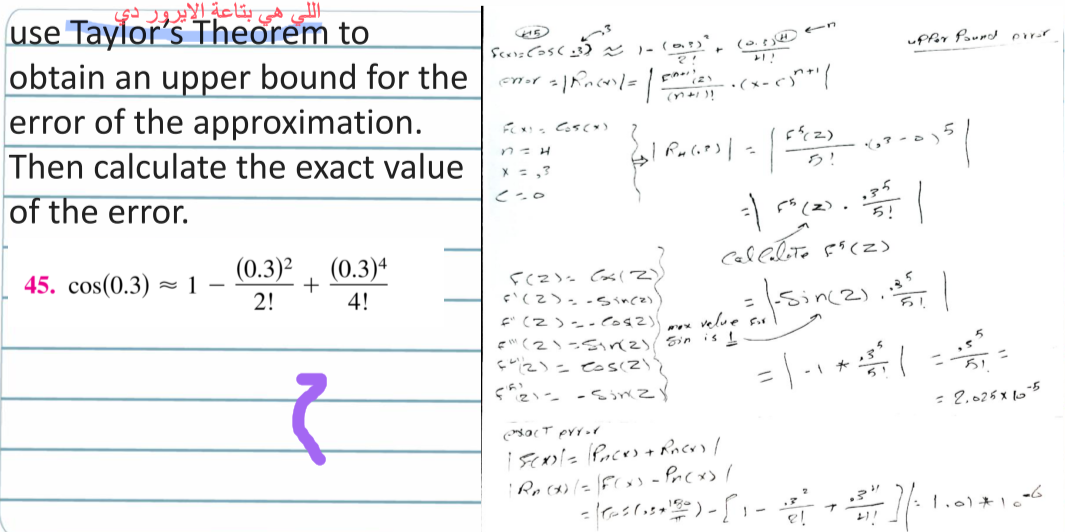 اللي هي بتاعة الايرور دي
use Taylor's Theorem to
obtain an upper bound for the
error of the approximation.
Then calculate the exact value
of the error.
45. cos(0.3) ≈ 1 − (0.3)²/2! + (0.3)⁴/4!
#45
upper bound error
error = |Rn(x)| = | fⁿ⁺¹(z)/(n+1)! · (x-c)ⁿ⁺¹ |
f(x) = cos(x)
n = 4
x = .3
c = 0
|R4(.3)| = | f⁵(z)/5! · (.3 - 0)⁵ |
= | f⁵(z) · .3⁵/5! |
calculate f⁵(z)
f(z) = cos(z)
f'(z) = -sin(z)
f''(z) = -cos(z)
f'''(z) = sin(z)
f⁴(z) = cos(z)
f⁽⁵⁾(z) = -sin(z)
max value for
sin is 1
= | -sin(z) · .3⁵/5! |
= | -1 * .3⁵/5! | = .3⁵/5! =
= 2.025 x 10⁻⁵
exact error
|f(x)| = |Pn(x) + Rn(x)|
|Rn(x)| = |f(x) - Pn(x)|
= |cos(.3*180/π) - [1 - .3²/2! + .3⁴/4!]| = 1.01 * 10⁻⁶